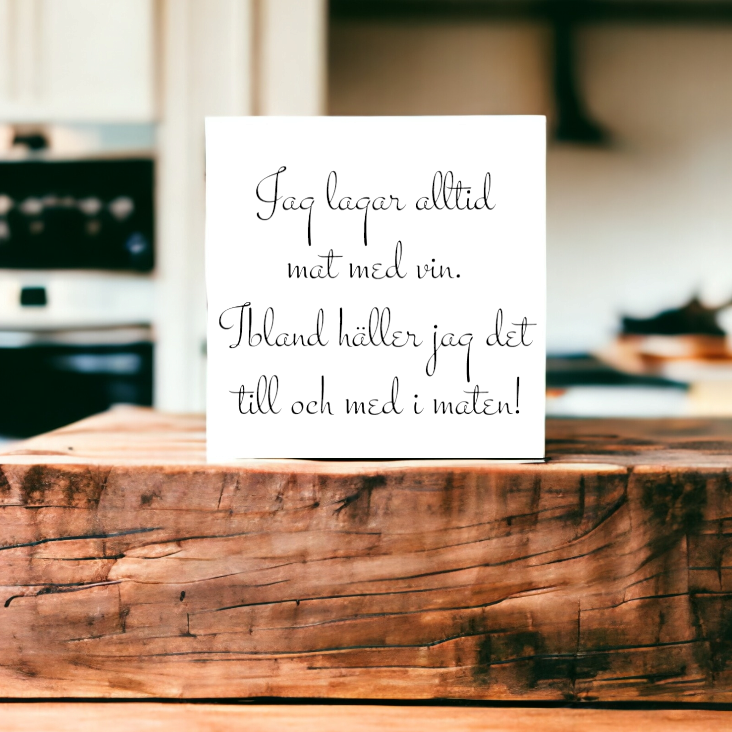 Jag lagar alltid
mat med vin.
Ibland häller jag det
till och med i maten!